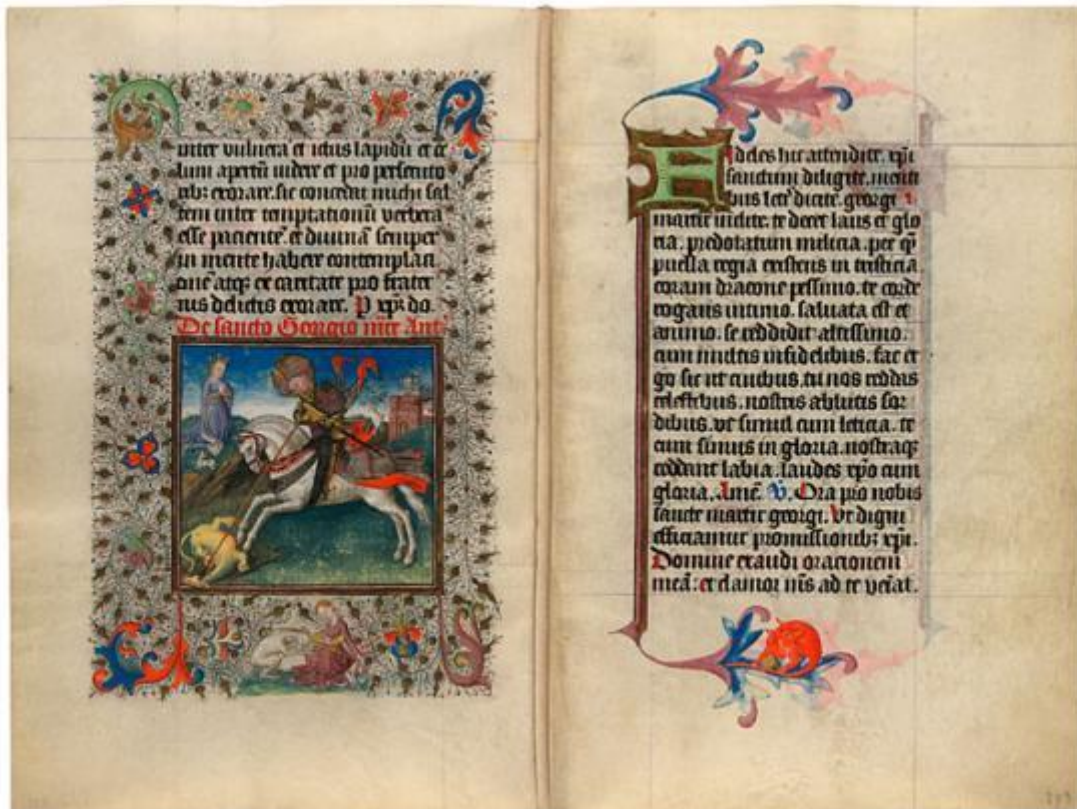 inter vulnera et ictus lapidū et ce
lum apertū videre et pro persecuto
ribꝫ exorare. sic concedat michi sal
tem inter temptationū verbera
esse paciente. et divinā semper
in mente habere contemplaci
onē atqꝫ ex caritate pro frater
nis delictis exorare. P xp̄m do.
De sancto Georgio mr̄e Ant̄
Fideles hic attendite. xp̄i
sanctum diligite. menti
bus lete dicite. georgi
martir inclite. te decet laus et glo
ria. predotatum milicia. per quē
puella regia existens in tristicia.
coram dracone pessimo. te corde
rogans intimo. salvata est et
animo. se reddidit altissimo.
cum multis infidelibus. fac er
go sic ut civibus. tu nos reddas
celestibus. nostris ablutis sor
dibus. ut simul cum leticia. te
cum simus in gloria. nostraqꝫ
reddant labia. laudes xp̄o cum
gloria. Amē. V̄. Ora pro nobis
sancte martir georgi. Ut digni
efficiamur promissionibꝫ xp̄i.
Domine exaudi orationem
meā: et clamor mēs ad te veniat.